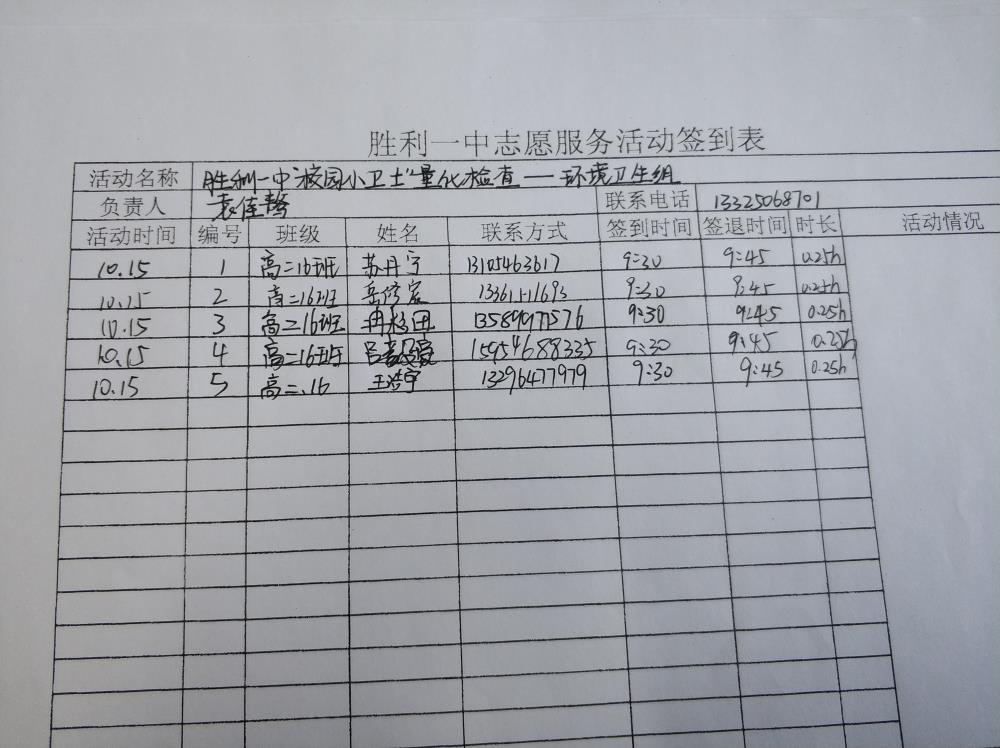 胜利一中志愿服务活动签到表
活动名称 胜利一中"校园小卫士"量化检查——环境卫生组
负责人 袁佳 联系电话 13325068701
活动时间 编号 班级 姓名 联系方式 签到时间 签退时间 时长 活动情况
10.15 1 高二16班 苏丹宁 13105463617 9:30 9:45 0.25h
10.15 2 高二16班 岳 9:30 9:45 0.25h
10.15 3 高二16班 冉 9:30 9:45 0.25h
10.15 4 高二16班 吕 15954688335 9:30 9:45 0.25h
10.15 5 高二.16 王浩宇 13296477979 9:30 9:45 0.25h